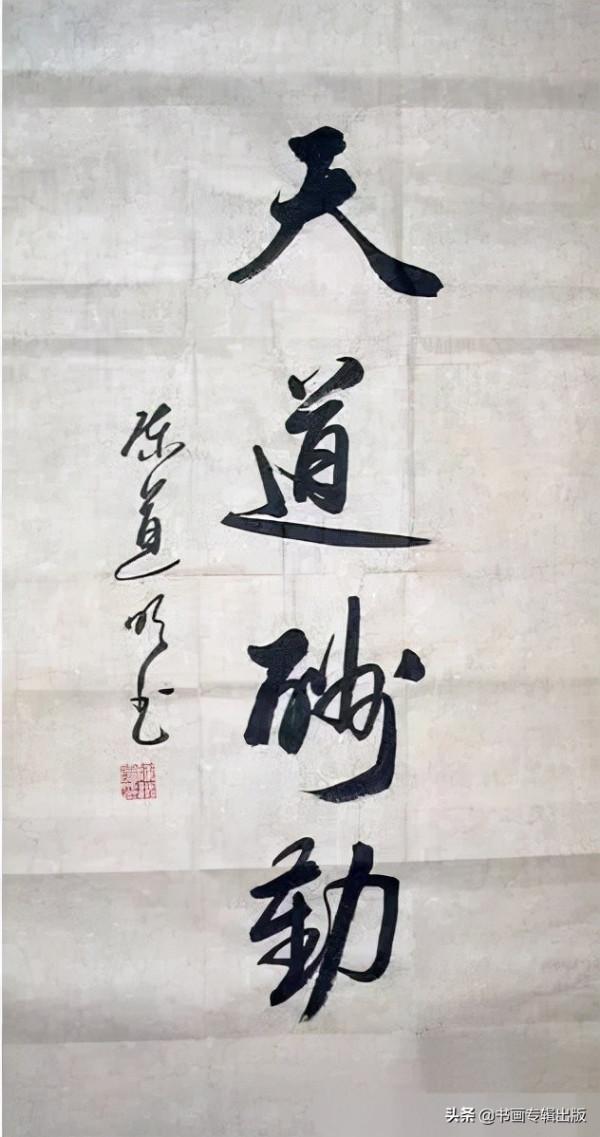 天道酬勤
陈道明书
头条 @书画专辑出版